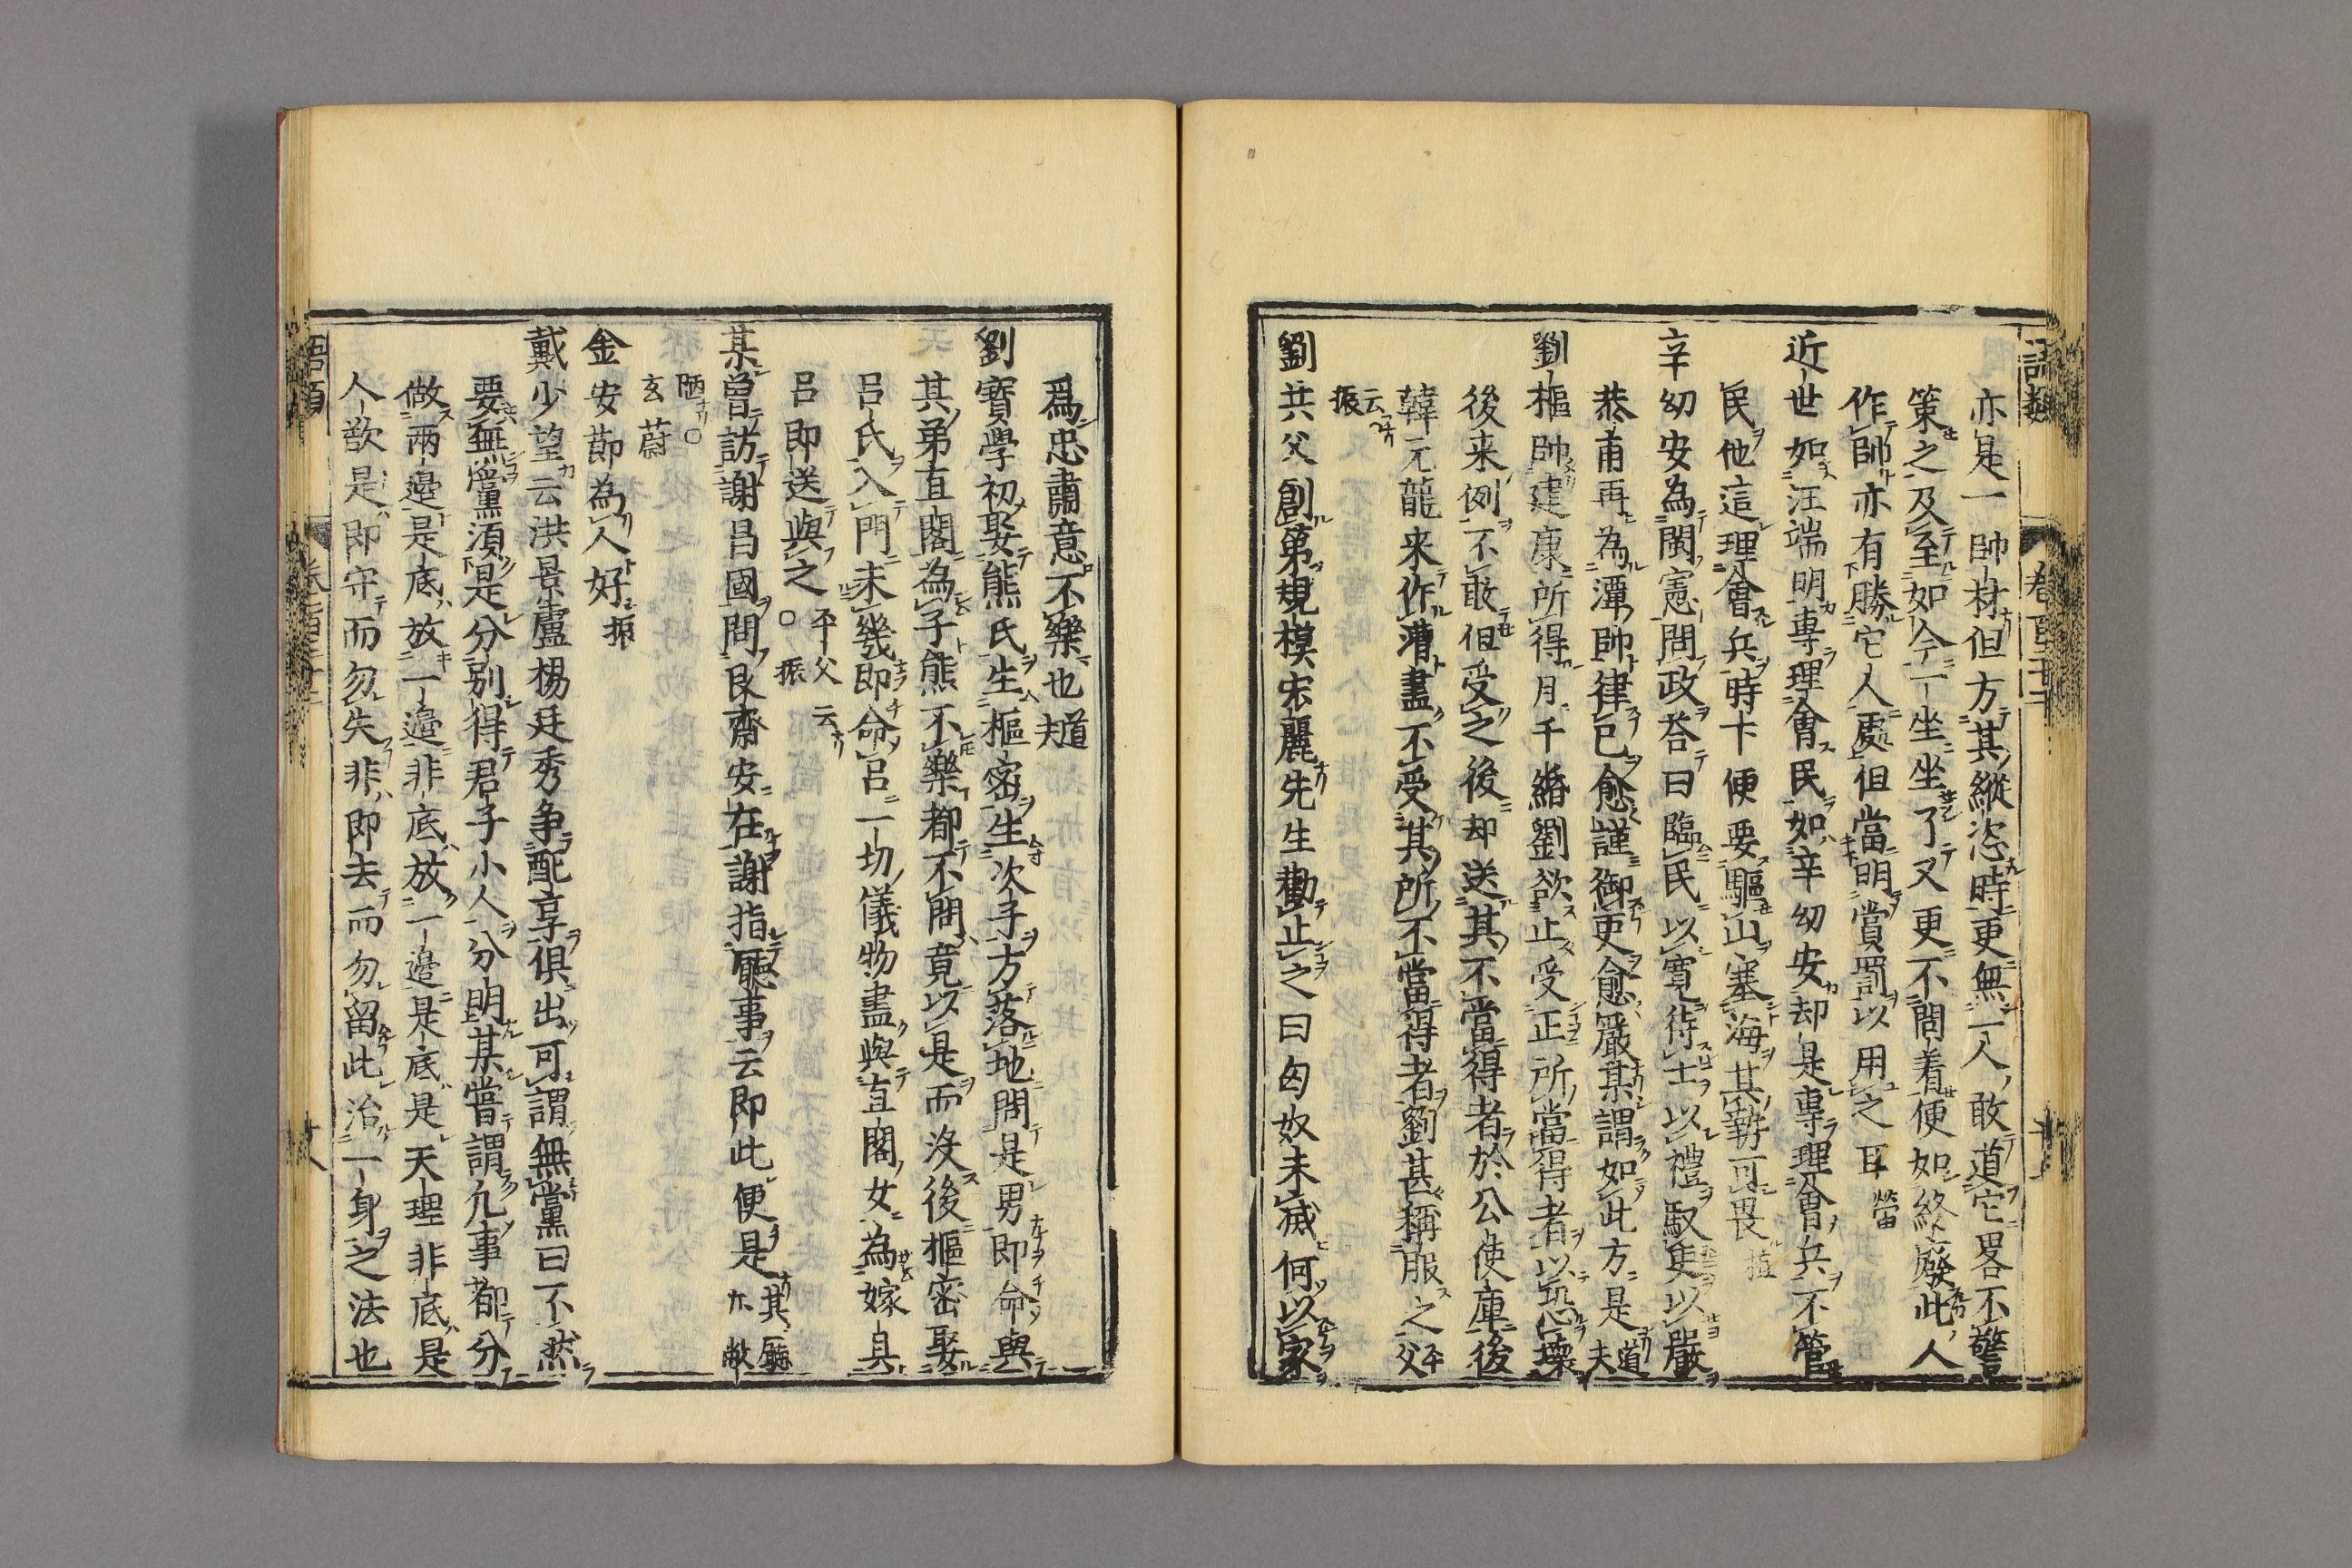 語類　卷百卅二
亦是一帥材但方其縱恣時更無一人敢道它畧不警
策之及至如今一坐坐了又更不問着便如終廢此人
作帥亦有勝它人處但當明賞罰以用之耳㽦
近世如汪端明專理會民如辛幼安却是專理會兵不管
民他這理會兵時卞便要驅山塞海其勢可畏 植
辛幼安為閩憲問政荅曰臨民以寛待士以禮馭吏以嚴
恭甫再為潭帥律已愈謹御吏愈嚴某謂如此方是 道夫
劉樞帥建康所得月千緡劉欲止受正所當得者以恐壞
後来例不敢但受之後却送其不當得者於公使庫後
韓元龍来作漕盡不受其所不當得者劉甚稱服之 平父
云 振
劉共父創第規模宏麗先生勸止之曰匈奴未滅何以家
爲忠肅意不樂也 道夫
劉寶學初娶熊氏生樞密生次子方落地問是男即命與
其弟直閣為子熊不樂都不問竟以是而没後樞密娶
呂氏入門未幾即命呂一切儀物盡與直閣女為嫁具
呂即送與之〇 平父云 振
某曾訪謝昌國問艮齋安在謝指廳事云即此便是 其廳亦敝
陋〇 蔚玄
金安節為人好 振
戴少望云洪景盧楊廷秀争配享俱出可謂無黨曰不然
要無黨須是分别得君子小人分明某嘗謂凢事都分
做兩邉是底放一邉非底放一邉是底是天理非底是
人欲是即守而勿失非即去而勿留此治一身之法也
語類　卷百卅二　十八